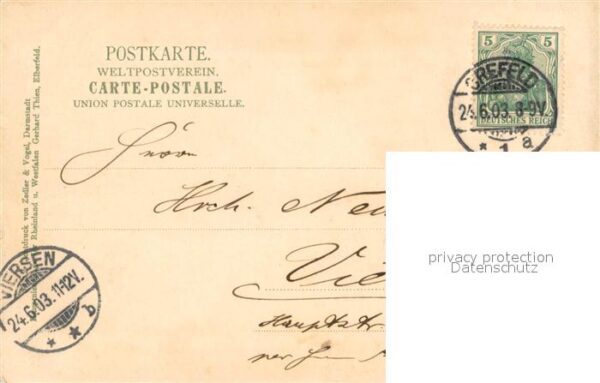 POSTKARTE.
WELTPOSTVEREIN.
CARTE-POSTALE.
UNION POSTALE UNIVERSELLE.
5 5
DEUTSCHES REICH
CREFELD
24.6.03. 8-9V.
* 1 a
Herrn
Hrch. Ne
Vie
Hauptstr.
per
privacy protection
Datenschutz
VIERSEN
24.6.03. 11-12V.
* * b
druck von Zedler & Vogel, Darmstadt
Rheinland u. Westfalen Gerhard Thien, Elberfeld.